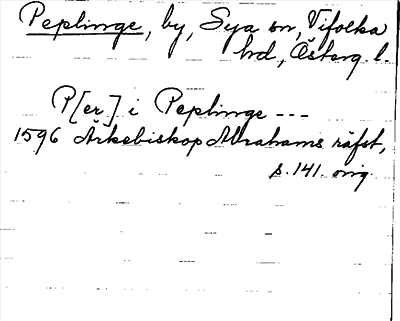 Peplinge, by, Sya sn, Vifolka
hd, Österg. l.
P[er] i Peplinge ---
1596 Ärkebiskop Abrahams räfst,
s. 141. orig.